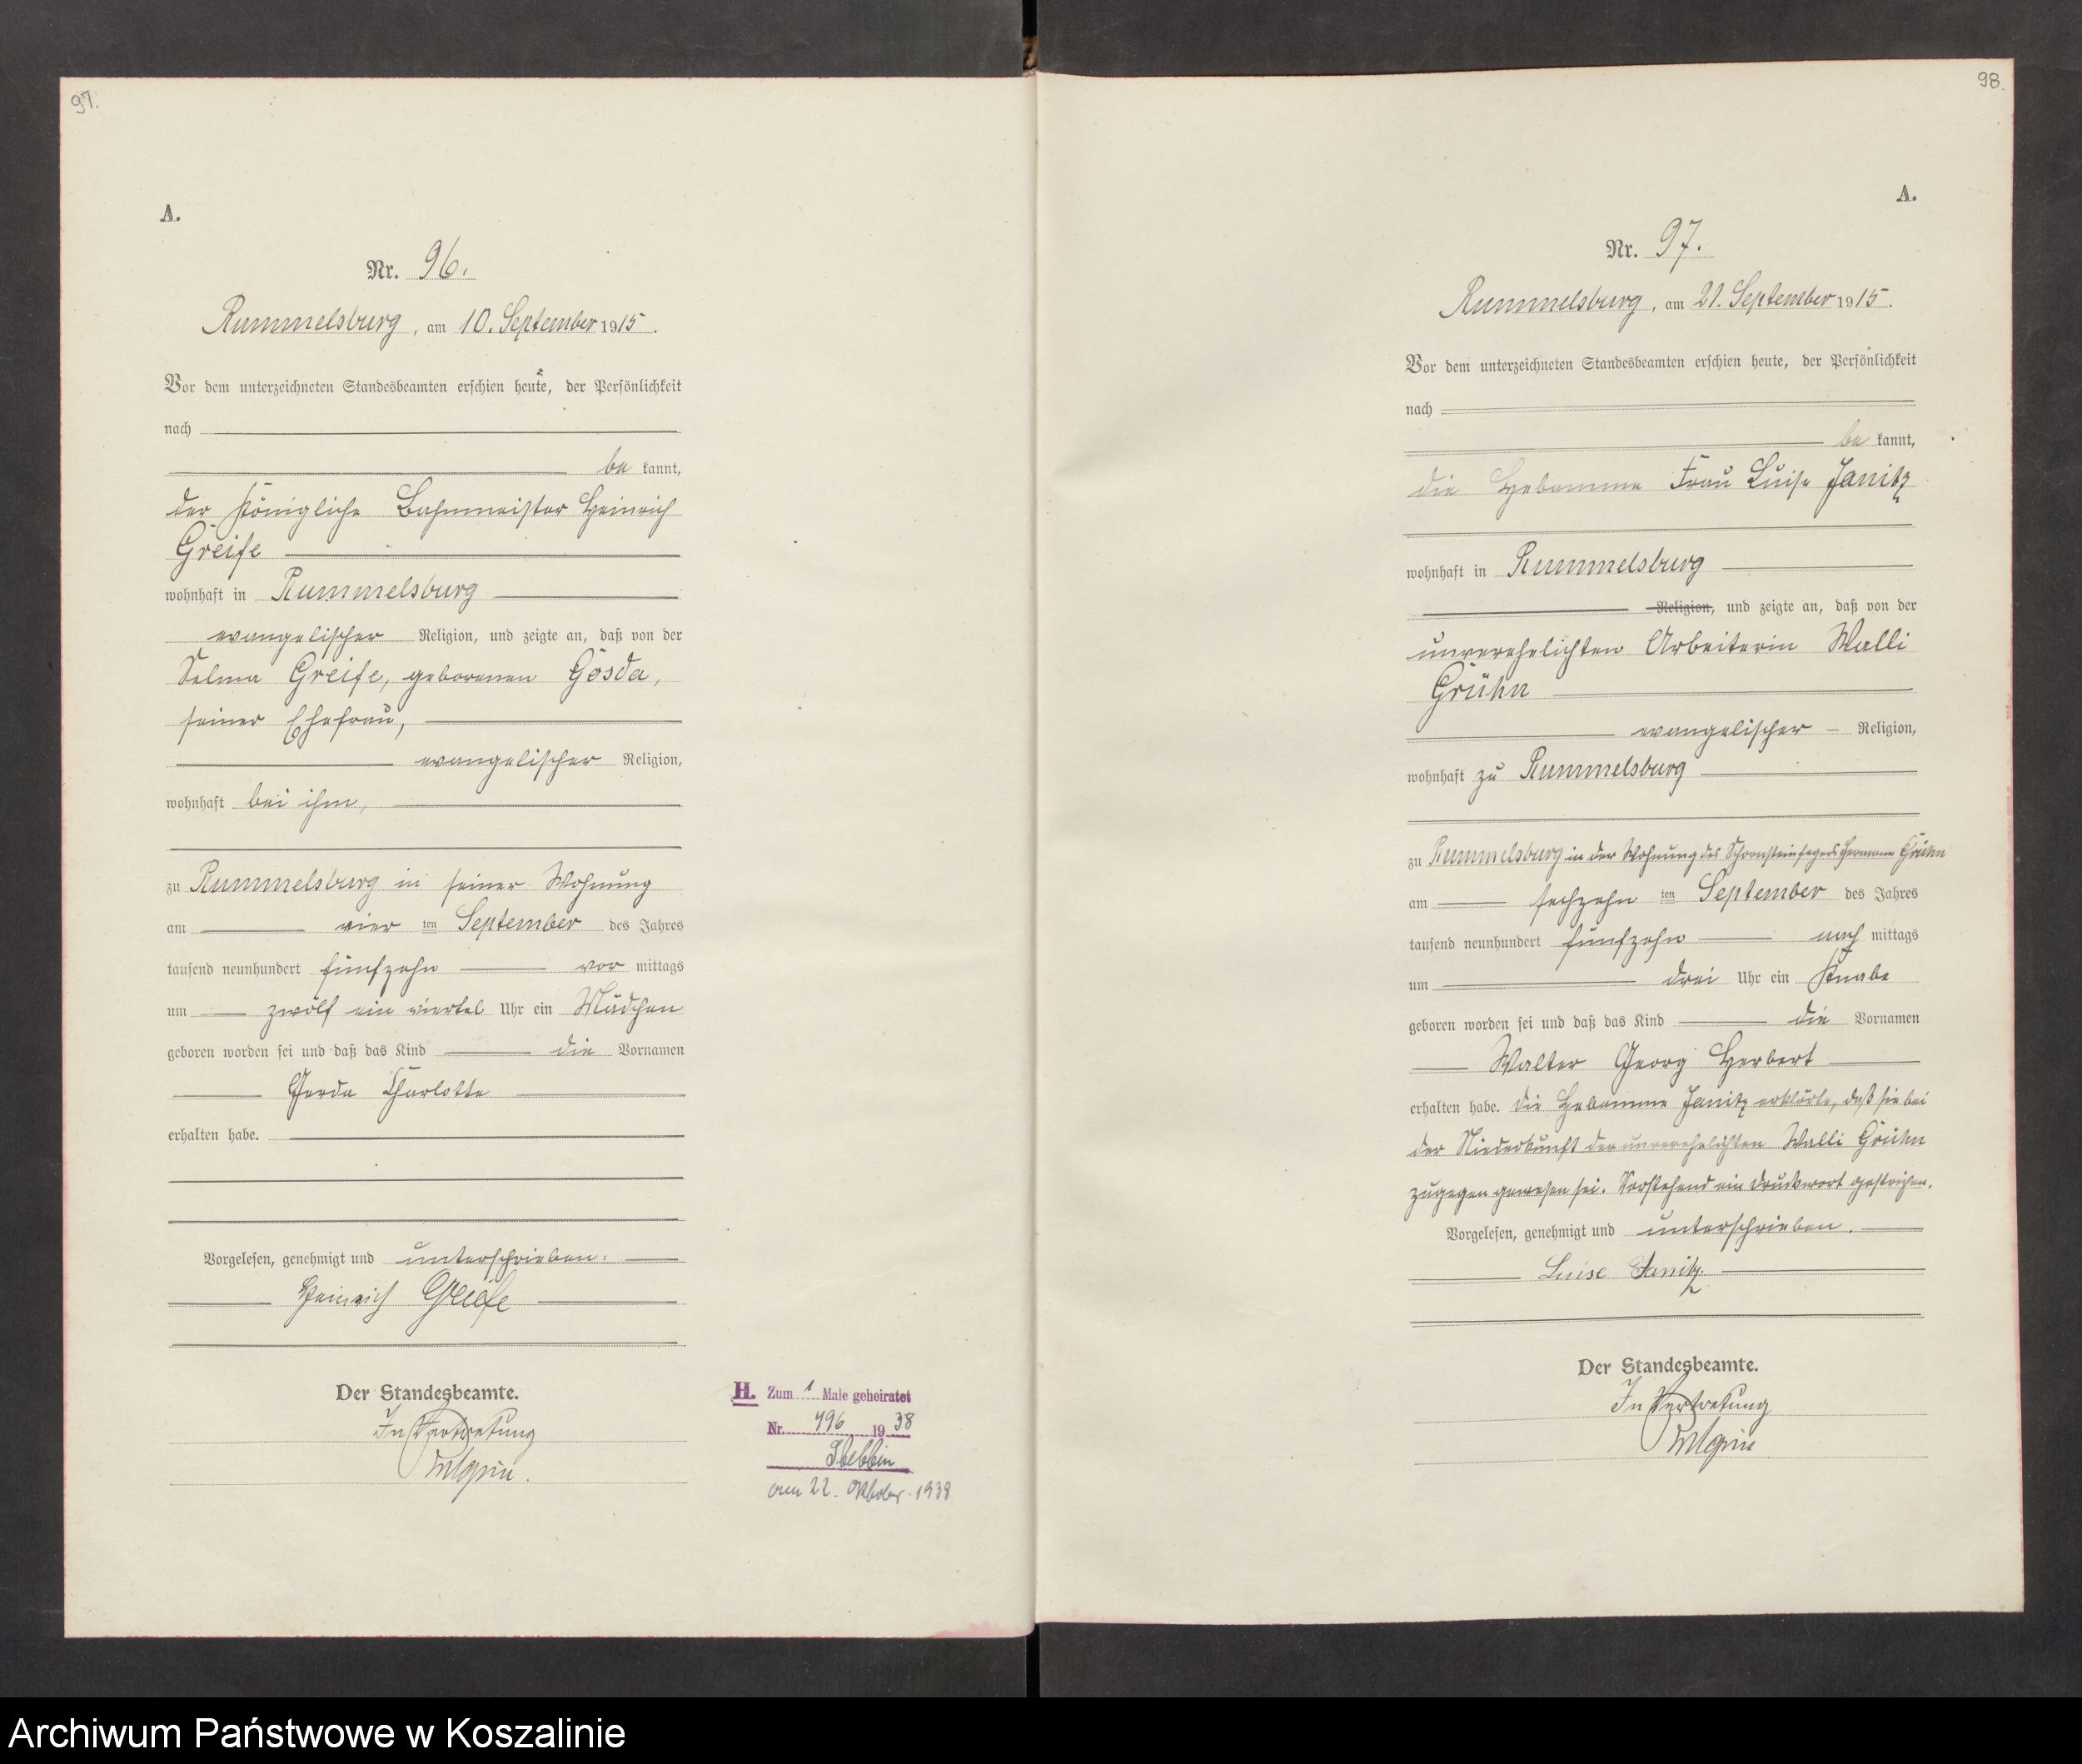 97.
A.
Nr. 96.
Rummelsburg, am 10. September 1915.
Vor dem unterzeichneten Standesbeamten erschien heute, der Persönlichkeit
nach
be kannt,
der Königliche Bahnmeister Heinrich
Greife
wohnhaft in Rummelsburg
evangelischer Religion, und zeigte an, daß von der
Selma Greife, geborenen Gosda,
seiner Ehefrau,
evangelischer Religion,
wohnhaft bei ihm,
zu Rummelsburg in seiner Wohnung
am vier ten September des Jahres
tausend neunhundert fünfzehn vor mittags
um zwölf ein viertel Uhr ein Mädchen
geboren worden sei und daß das Kind die Vornamen
Gerda Charlotte
erhalten habe.
Vorgelesen, genehmigt und unterschrieben.
Heinrich Greife
Der Standesbeamte.
In Vertretung
H. Zum 1 Male geheiratet
Nr. 496 1938
am 22. Oktober 1938
98.
A.
Nr. 97.
Rummelsburg, am 21. September 1915.
Vor dem unterzeichneten Standesbeamten erschien heute, der Persönlichkeit
nach
be kannt,
die Hebamme Frau Luise Janitz
wohnhaft in Rummelsburg
Religion, und zeigte an, daß von der
unverehelichten Arbeiterin Walli
Grühn
evangelischer Religion,
wohnhaft zu Rummelsburg
zu Rummelsburg in der Wohnung des Schornsteinfegers Hermann Grühn
am sechzehn ten September des Jahres
tausend neunhundert fünfzehn nach mittags
um drei Uhr ein Knabe
geboren worden sei und daß das Kind die Vornamen
Walter Georg Herbert
erhalten habe. Die Hebamme Janitz erklärte, daß sie bei
der Niederkunft der unverehelichten Walli Grühn
zugegen gewesen sei. Vorstehend ein Druckwort gestrichen.
Vorgelesen, genehmigt und unterschrieben.
Luise Janitz
Der Standesbeamte.
In Vertretung
Archiwum Państwowe w Koszalinie